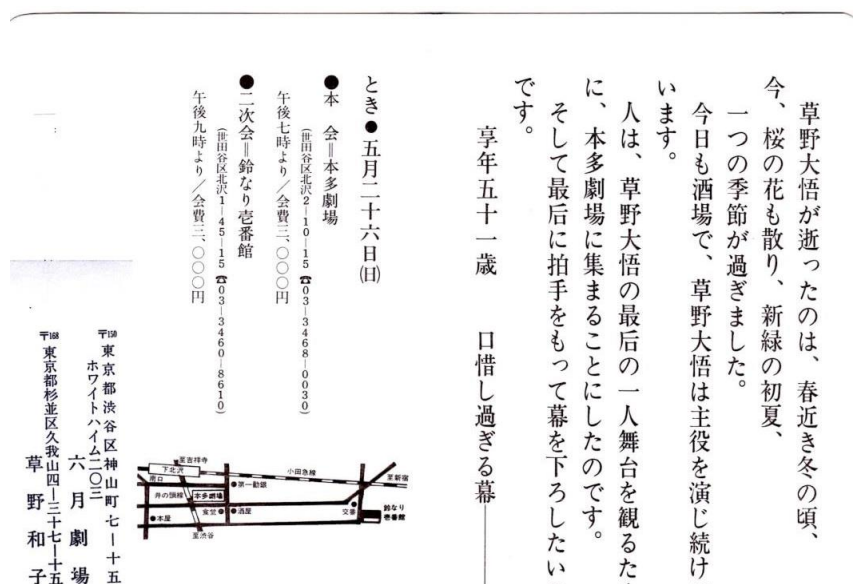 草野大悟が逝ったのは、春近き冬の頃、
今、桜の花も散り、新緑の初夏、
一つの季節が過ぎました。
今日も酒場で、草野大悟は主役を演じ続け
います。
人は、草野大悟の最后の一人舞台を観るた
に、本多劇場に集まることにしたのです。
そして最后に拍手をもって幕を下ろしたい
です。
享年五十一歳　口惜し過ぎる幕――
とき●五月二十六日(日)
●本　会＝本多劇場
(世田谷区北沢2―10―15 ☎03―3468―0030)
午後七時より／会費三、〇〇〇円
●二次会＝鈴なり壱番館
(世田谷区北沢1―45―15 ☎03―3460―8610)
午後九時より／会費三、〇〇〇円
至吉祥寺
下北沢
南口
小田急線
至新宿
●第一勧銀
井の頭線
本多劇場
食堂●
●酒屋
交番
鈴なり
壱番館
●本屋
至渋谷
〒150
東京都渋谷区神山町七―十五
ホワイトハイム二〇三
六月劇場
〒168
東京都杉並区久我山四―三十七―十五
草野和子